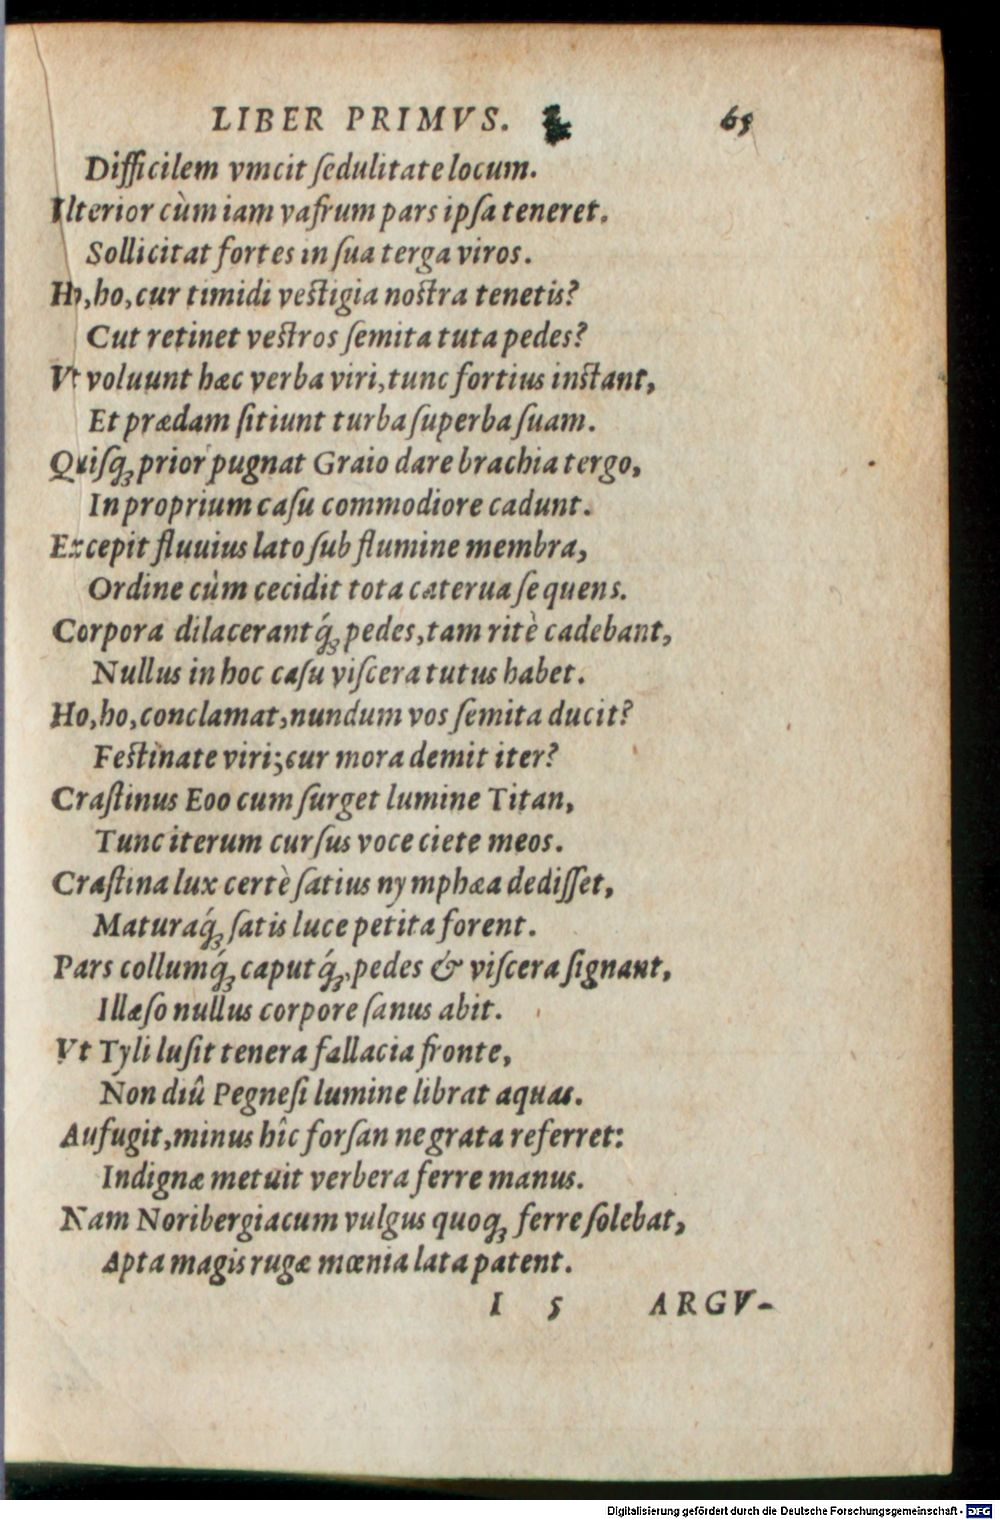 LIBER PRIMVS. 65
Difficilem vincit ſedulitate locum.
Vlterior cùm iam vafrum pars ipſa teneret.
Sollicitat fortes in ſua terga viros.
Ho, ho, cur timidi veſtigia noſtra tenetis?
Cut retinet veſtros ſemita tuta pedes?
Vt voluunt hæc verba viri, tunc fortius inſtant,
Et prædam ſitiunt turba ſuperba ſuam.
Quiſq; prior pugnat Graio dare brachia tergo,
In proprium caſu commodiore cadunt.
Excepit fluuius lato ſub flumine membra,
Ordine cùm cecidit tota caterua ſequens.
Corpora dilacerantq́; pedes, tam ritè cadebant,
Nullus in hoc caſu viſcera tutus habet.
Ho, ho, conclamat, nundum vos ſemita ducit?
Feſtinate viri; cur mora demit iter?
Craſtinus Eoo cum ſurget lumine Titan,
Tunc iterum curſus voce ciete meos.
Craſtina lux certè ſatius nymphæa dediſſet,
Maturaq́; ſatis luce petita forent.
Pars collumq́; caputq́;, pedes & viſcera ſignant,
Illæſo nullus corpore ſanus abit.
Vt Tyli luſit tenera fallacia fronte,
Non diû Pegneſi lumine librat aquas.
Aufugit, minus hîc forſan ne grata referret:
Indignæ metuit verbera ferre manus.
Nam Noribergiacum vulgus quoq; ferre ſolebat,
Apta magis rugæ mœnia lata patent.
I 5 ARGV-
Digitalisierung gefördert durch die Deutsche Forschungsgemeinschaft - DFG